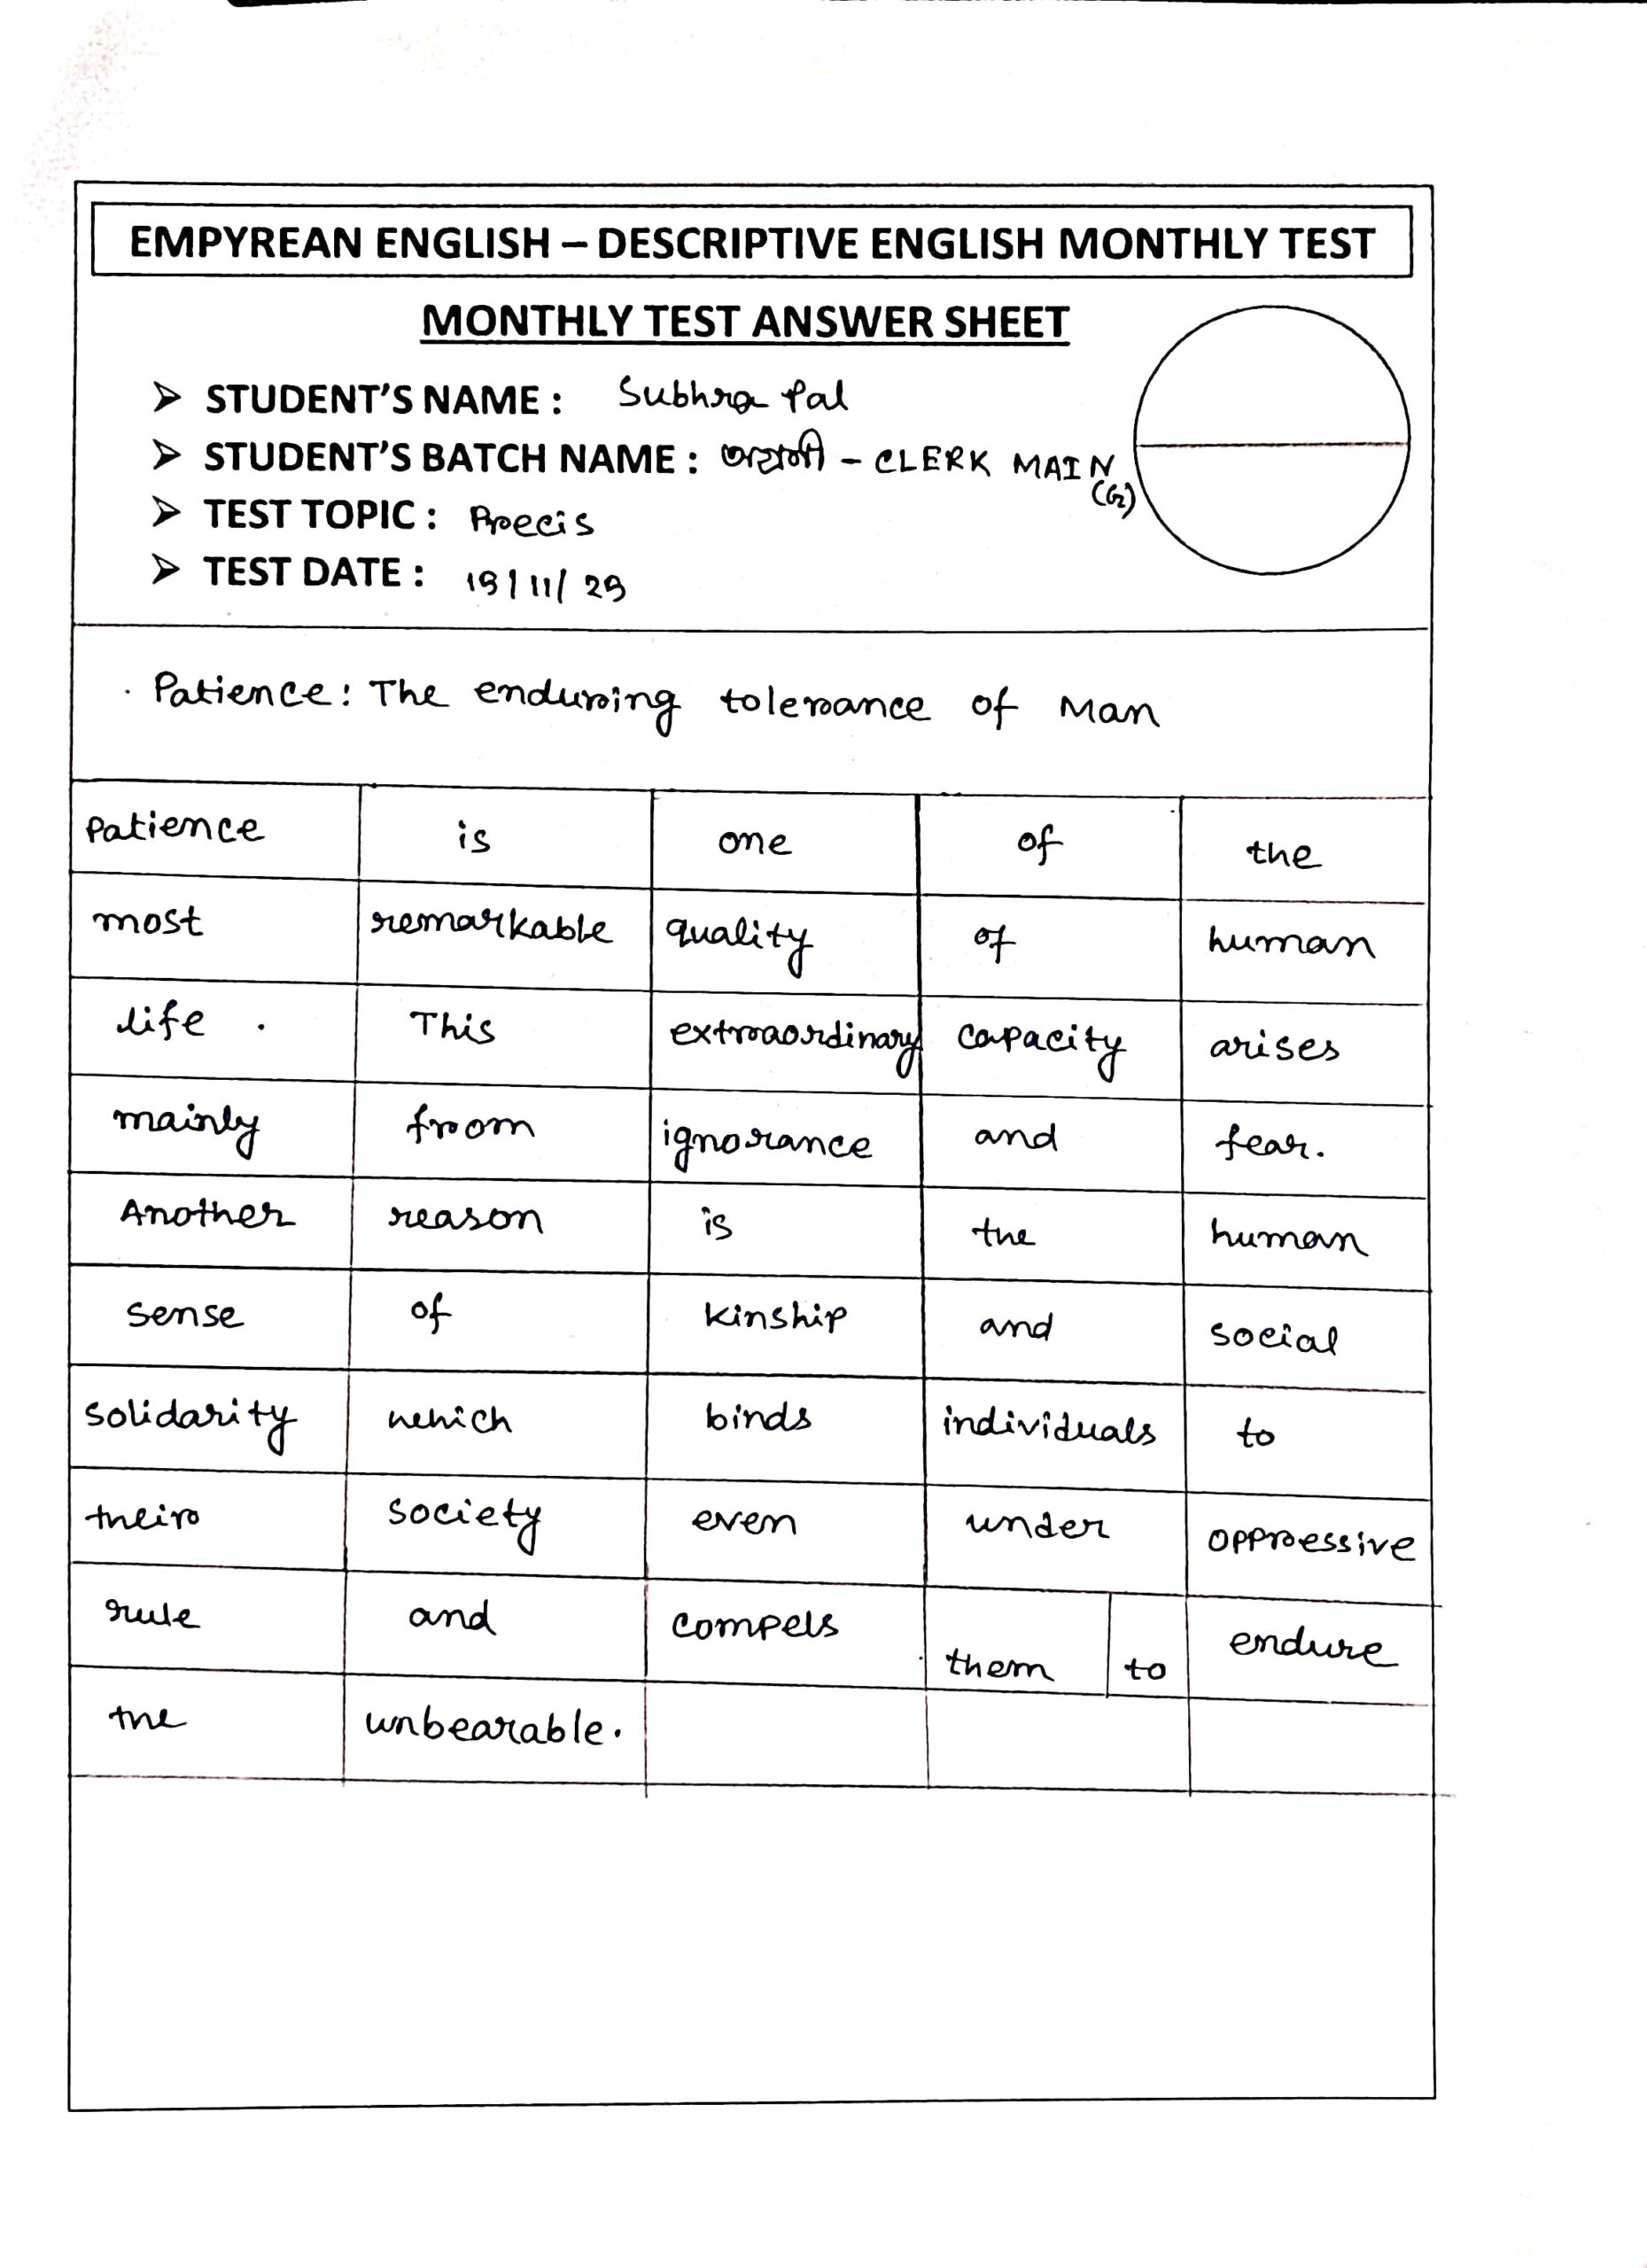 EMPYREAN ENGLISH – DESCRIPTIVE ENGLISH MONTHLY TEST
MONTHLY TEST ANSWER SHEET
➢ STUDENT'S NAME : Subhra Pal
➢ STUDENT'S BATCH NAME : - CLERK MAIN
(G2)
➢ TEST TOPIC : Precis
➢ TEST DATE : 19/11/25
Patience: The enduring tolerance of Man
Patience is one of the
most remarkable quality of human
life . This extraordinary capacity arises
mainly from ignorance and fear.
Another reason is the human
sense of kinship and social
solidarity which binds individuals to
their society even under oppressive
rule and compels them to endure
the unbearable.